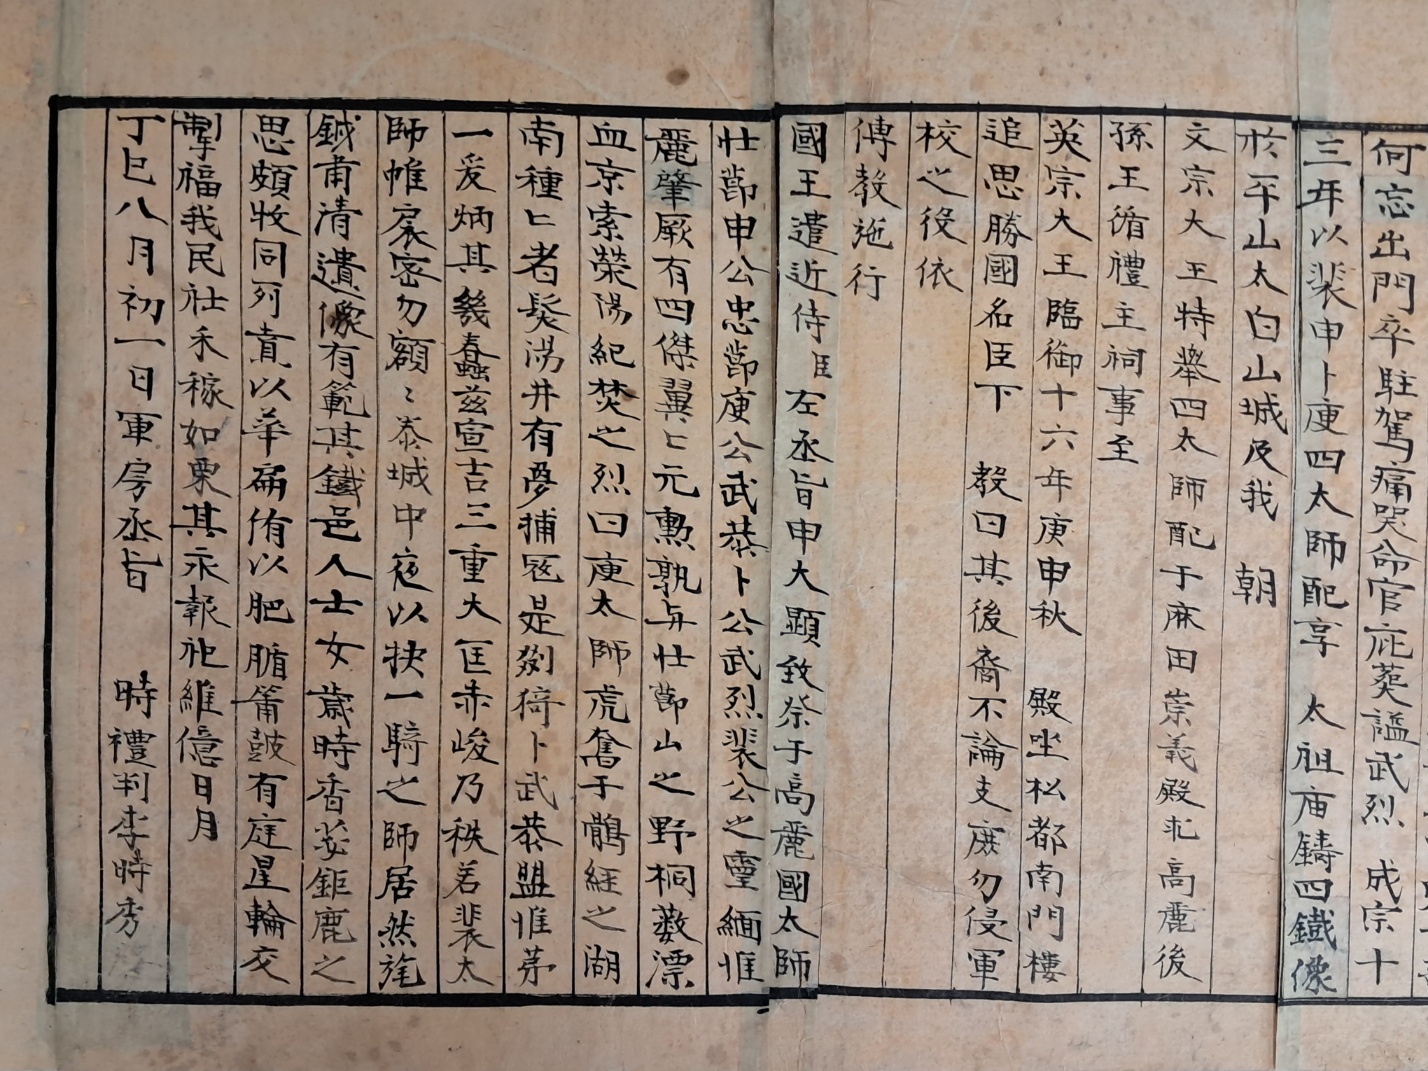 何忘出門卒駐駕痛哭命官庇葬謚武烈 成宗十
三年以裴申卜庾四太師配享 太祖庙鑄四鐵像
於平山太白山城及我 朝
文宗大王特舉四太師配于麻田崇義殿求高麗後
孫王循禮主祠事至
英宗大王臨御十六年庚申秋 殿坐松都南門樓
追思勝國名臣下 教曰其後裔不論支庶勿侵軍
校之役依
傳教施行
國王遣近侍臣左丞旨申大顯致祭于高麗國太師
壮節申公忠節庾公武恭卜公武烈裴公之靈緬惟
麗肇厥有四傑翼匕元勳孰与壮節山之野桐藪漂
血京索榮陽紀焚之烈曰庾太師虎奮于鶻経之湖
南種匕者髮湯井有夢捕冦是剡猗卜武恭盟惟茅
一爰炳其幾蠢玆宣吉三重大匡赤峻乃秩若裴太
師帷宸密勿額〻泰城中夜以抶一騎之師居然旄
鉞甫清遺像有範其鐵邑人士女歲時香苾鉅鹿之
思頗牧同列賁以華扁侑以肥腯籥鼓有庭星輪交
掣福我民社禾稼如栗其永報祀維億日月
丁巳八月初一日軍房丞旨 時禮判李時秀